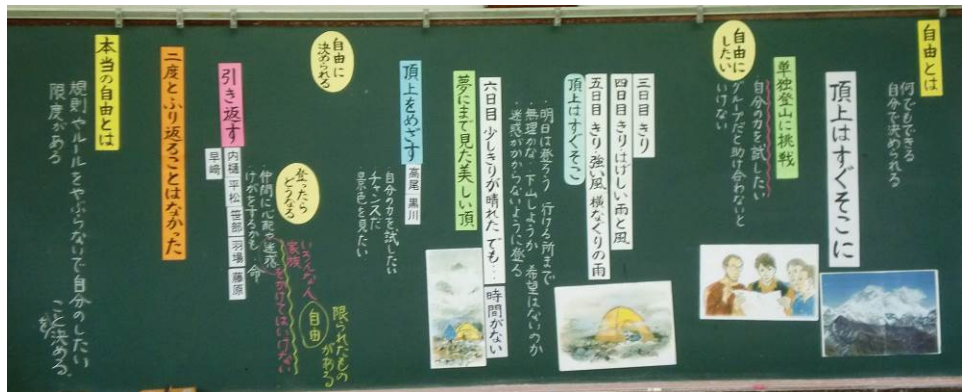 自由とは
何でもできる
自分で決められる
頂上はすぐそこに
単独登山に挑戦
自分の力を試したい
グループだと助け合わないと
いけない
自由に
したい
三日目 きり
四日目 きり・はげしい雨と風
五日目 きり・強い風、横なぐりの雨
頂上はすぐそこ
・明日は登ろう 行ける所まで
・無理かな 下山しようか 希望はないのか
迷惑がかからないように登る
六日目 少しきりが晴れた でも・・・
時間がない
夢にまで見た美しい頂
頂上をめざす
高尾
黒川
自分の力を試したい
チャンスだ
景色を見たい
自由に
決められる
登ったら
どうなる
引き返す
内樋
平松
笹部
羽場
藤原
早崎
・仲間に心配や迷惑をかけてはいけない
・けがをするかも・命
いろんな人
家族
限られたもの
がある
自由
二度とふり返ることはなかった
本当の自由とは
規則やルールをやぶらないで自分のしたい
ことを決める。
限度がある